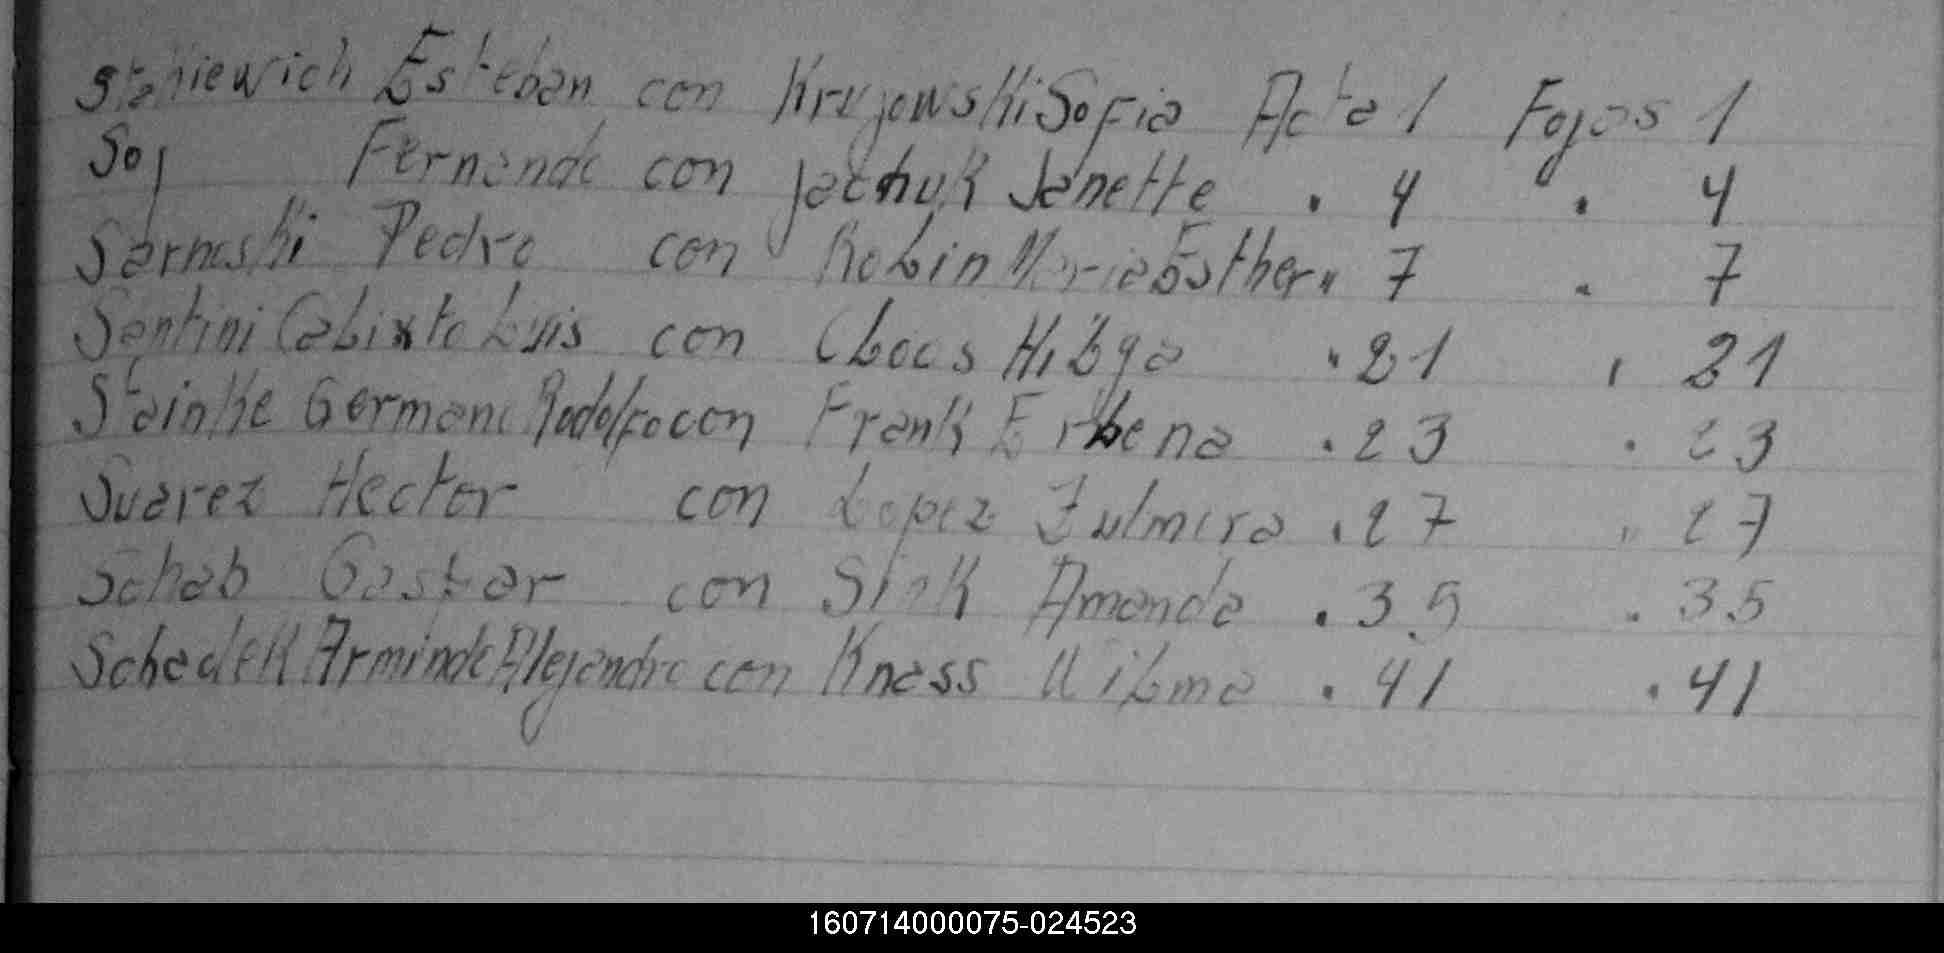 Staniewich Esteban con Krujowski Sofia Acta 1 Fojas 1
Soj Fernando con Jachuk Janette . 4 . 4
Sarnoski Pedro con Robin Maria Esther " 7 " 7
Santini Calixto Luis con Cloos Hilga " 21 " 21
Steinke Germanc Rodolfo con Frank Erbena . 23 . 23
Suarez Hector con Lopez Zulmira " 27 " 27
Schab Gaspar con Sink Amanda . 35 . 35
Schadek Armindo Alejandro con Knass Wilma . 41 . 41
160714000075-024523